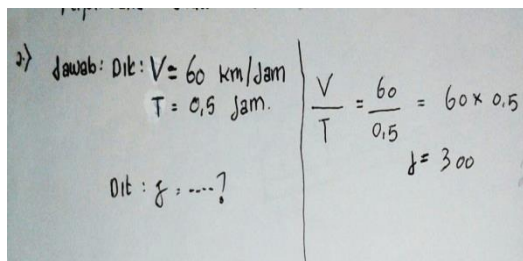 2.) Jawab: Dik: V = 60 km/Jam
T = 0,5 Jam.
Dit : J = ....?
V/T = 60/0,5 = 60 x 0,5
J = 300